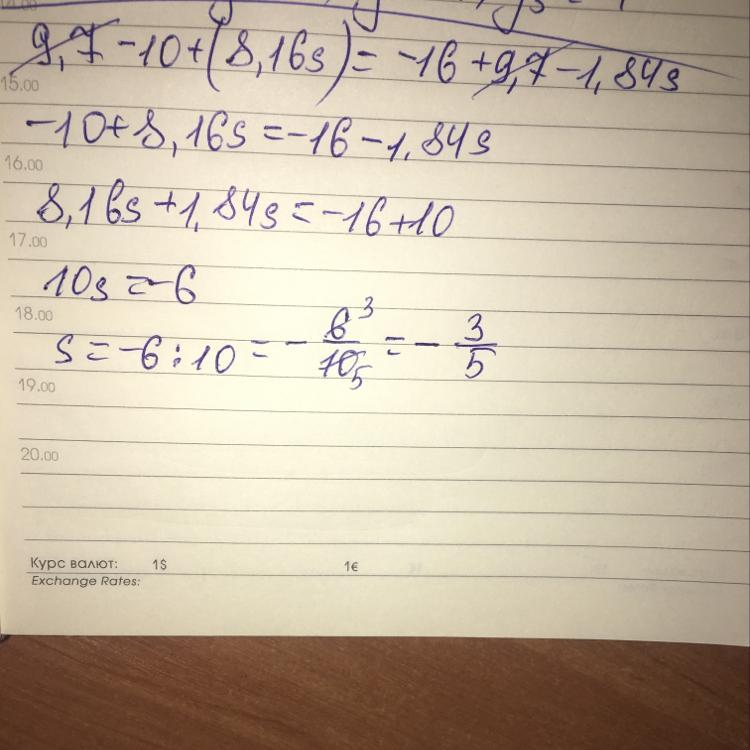 9,7 - 10 + (8,16s) = -16 + 9,7 - 1,84s
15.00
-10 + 8,16s = -16 - 1,84s
16.00
8,16s + 1,84s = -16 + 10
17.00
10s = -6
18.00
s = -6 : 10 = - 6 3 / 10 5 = - 3/5
19.00
20.00
Курс валют: 1$ 1€
Exchange Rates: